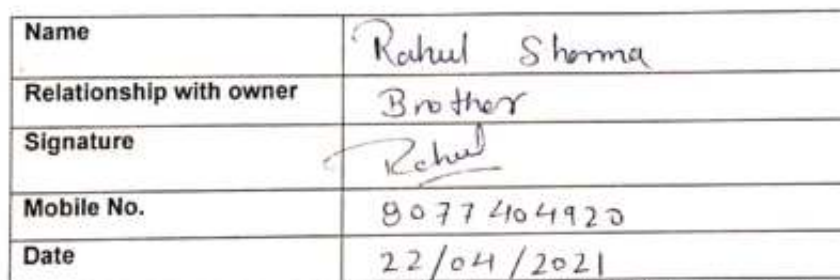 Name Rahul Sharma
Relationship with owner Brother
Signature Rahul
Mobile No. 8077404920
Date 22/04/2021